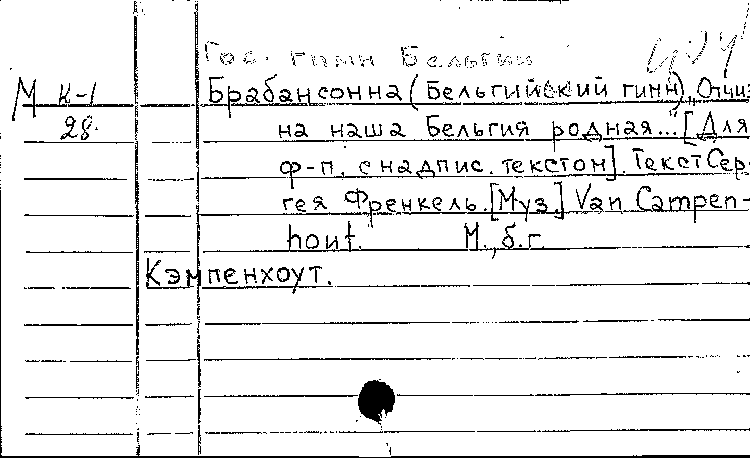 Гос. гимн Бельгии
М К-1 Брабансонна (Бельгийский гимн). „Отчиз-
28. на наша Бельгия родная..." [Для
ф-п. с надпис. текстом]. Текст Сер-
гея Френкель. [Муз.] Van Campen-
hout. М., б.г.
Кэмпенхоут.